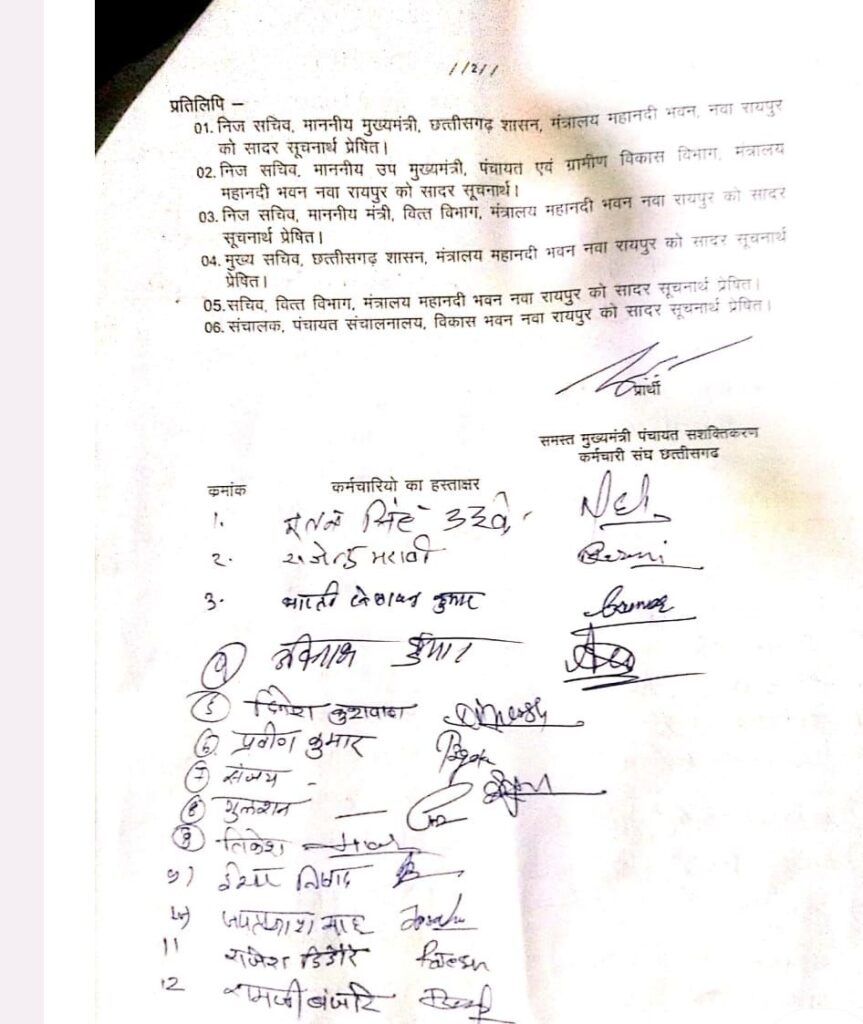 //2//
प्रतिलिपि –
01. निज सचिव, माननीय मुख्यमंत्री, छत्तीसगढ़ शासन, मंत्रालय महानदी भवन, नवा रायपुर
को सादर सूचनार्थ प्रेषित।
02. निज सचिव, माननीय उप मुख्यमंत्री, पंचायत एवं ग्रामीण विकास विभाग, मंत्रालय
महानदी भवन नवा रायपुर को सादर सूचनार्थ।
03. निज सचिव, माननीय मंत्री, वित्त विभाग, मंत्रालय महानदी भवन नवा रायपुर को सादर
सूचनार्थ प्रेषित।
04. मुख्य सचिव, छत्तीसगढ़ शासन, मंत्रालय महानदी भवन नवा रायपुर को सादर सूचनार्थ
प्रेषित।
05. सचिव, वित्त विभाग, मंत्रालय महानदी भवन नवा रायपुर को सादर सूचनार्थ प्रेषित।
06. संचालक, पंचायत संचालनालय, विकास भवन नवा रायपुर को सादर सूचनार्थ प्रेषित।
प्रार्थी
समस्त मुख्यमंत्री पंचायत सशक्तिकरण
कर्मचारी संघ छत्तीसगढ
क्रमांक कर्मचारियो का हस्ताक्षर
1. सिंह
2. राजेन्द्र मरावी
3. भारती कुमार
4 अविनाश कुमार
5 दिनेश कुशवाहा
6 प्रवीण कुमार
7 संजय
8 गुलशन
9 तिकेश
9) निषाद
जयप्रकाश साहू
11 राजेश डिडोरे
12 रामजी बंजारे